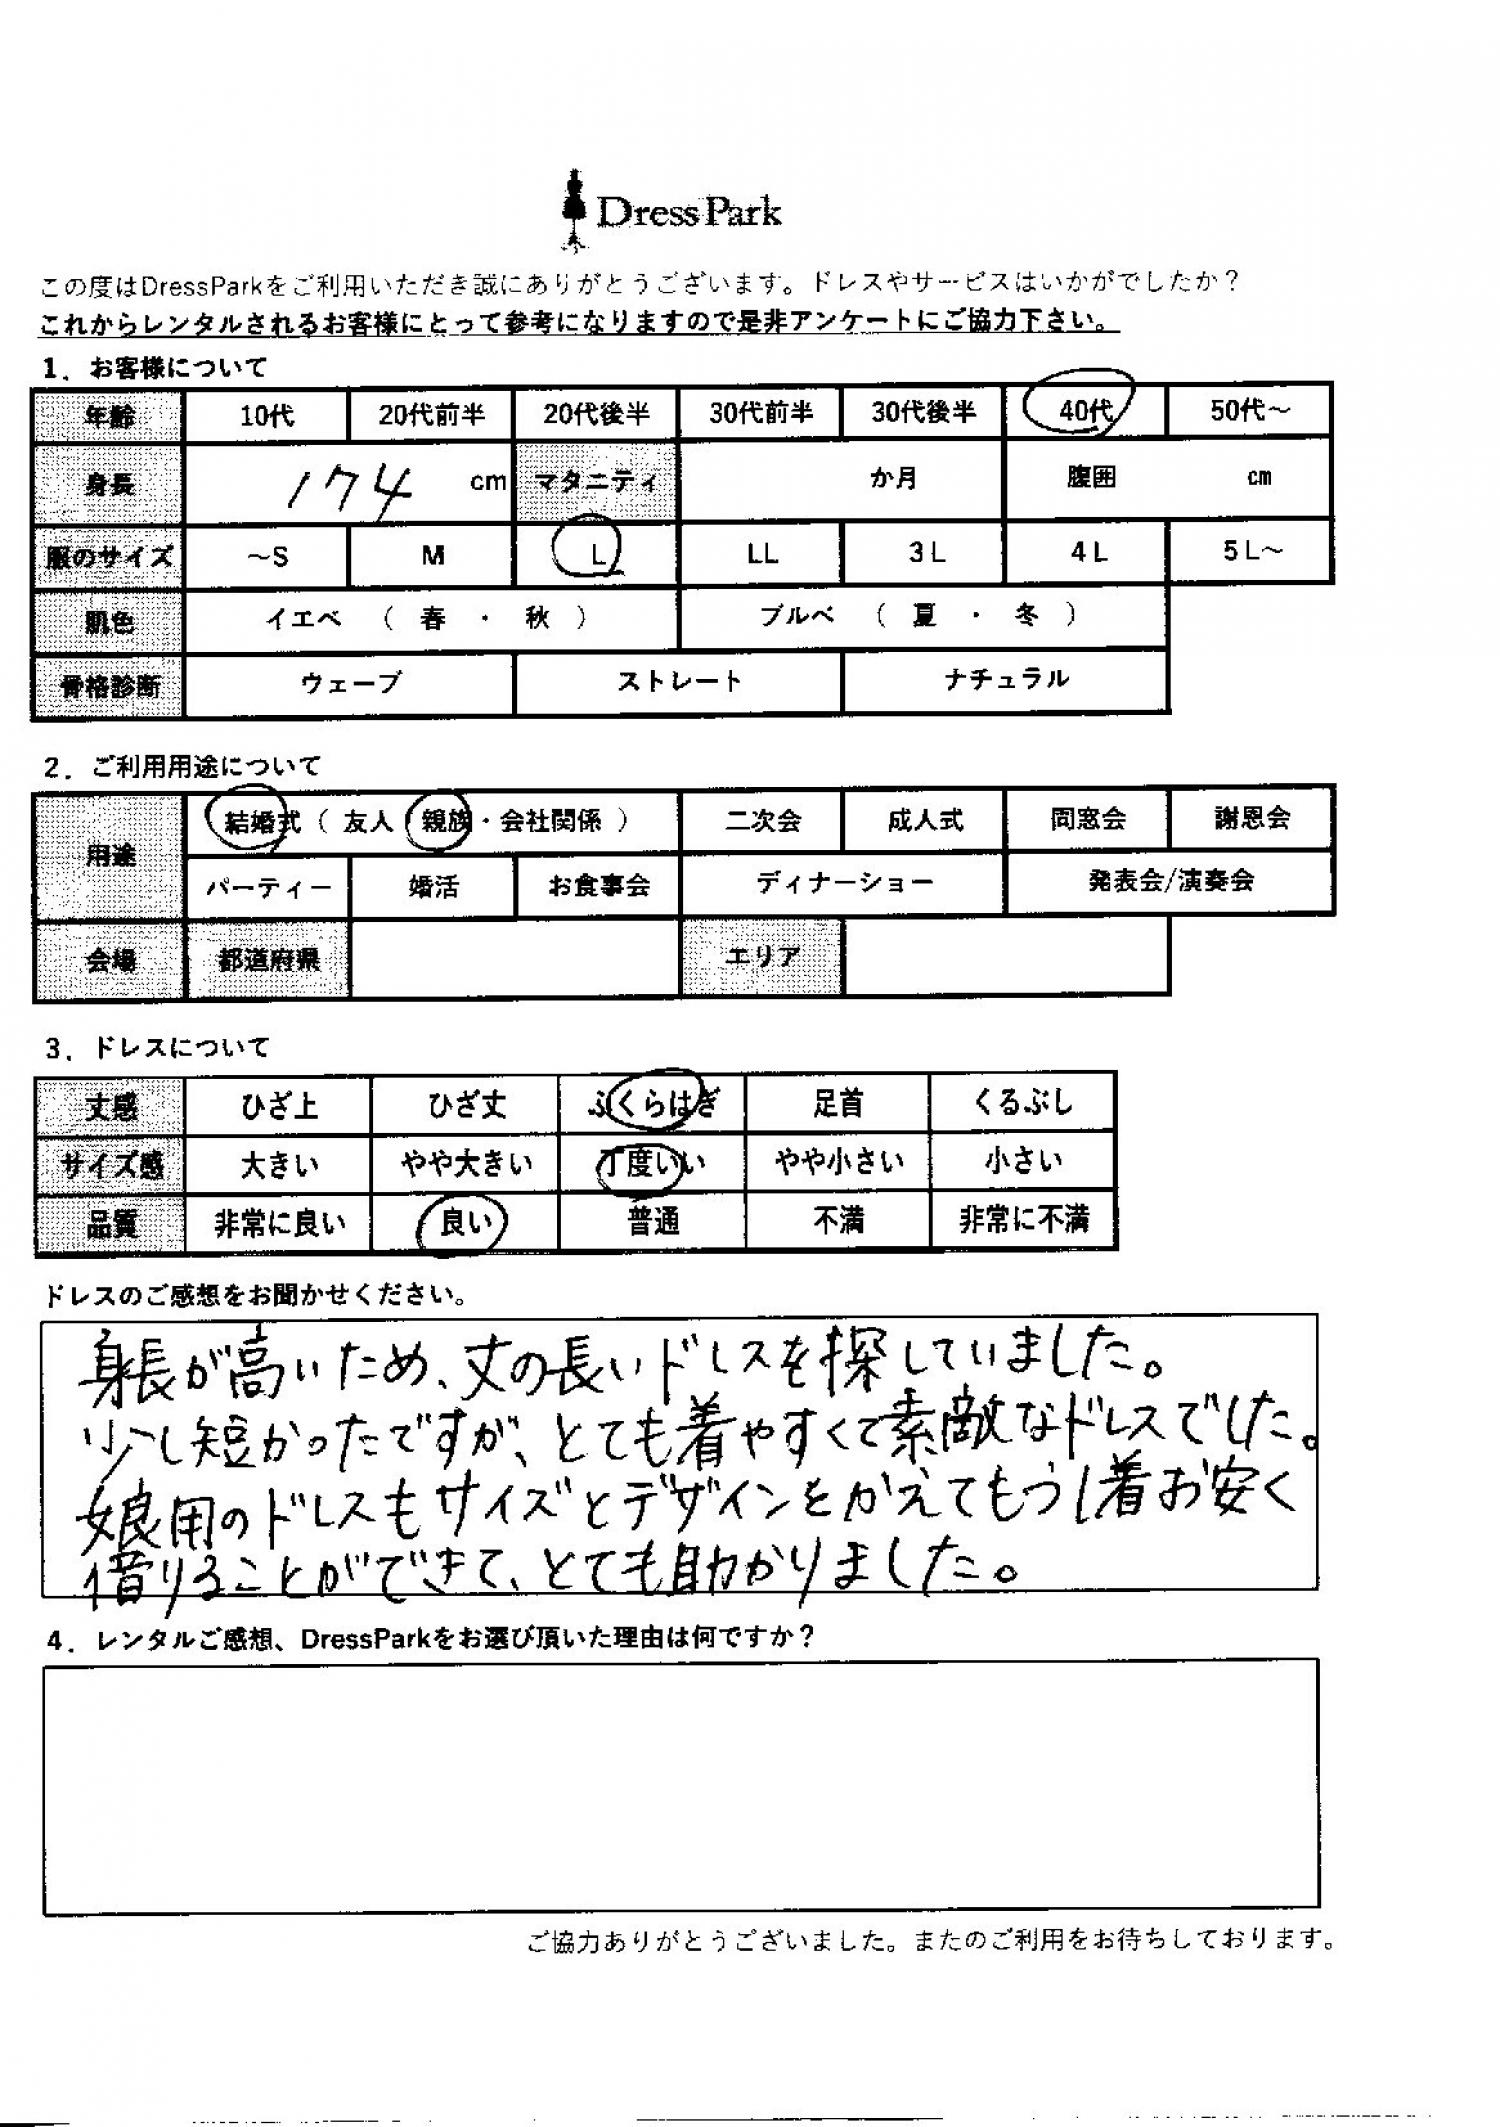 DressPark
この度はDressParkをご利用いただき誠にありがとうございます。ドレスやサービスはいかがでしたか？
これからレンタルされるお客様にとって参考になりますので是非アンケートにご協力下さい。
1．お客様について
年齢 10代 20代前半 20代後半 30代前半 30代後半 40代 50代～
身長 174 cm マタニティ か月 腹囲 cm
服のサイズ ～S M L LL 3L 4L 5L～
肌色 イエベ （ 春 ・ 秋 ） ブルベ （ 夏 ・ 冬 ）
骨格診断 ウェーブ ストレート ナチュラル
2．ご利用用途について
用途 結婚式（ 友人・親族・会社関係 ） 二次会 成人式 同窓会 謝恩会
パーティー 婚活 お食事会 ディナーショー 発表会/演奏会
会場 都道府県 エリア
3．ドレスについて
丈感 ひざ上 ひざ丈 ふくらはぎ 足首 くるぶし
サイズ感 大きい やや大きい 丁度いい やや小さい 小さい
品質 非常に良い 良い 普通 不満 非常に不満
ドレスのご感想をお聞かせください。
身長が高いため、丈の長いドレスを探していました。
少し短かったですが、とても着やすくて素敵なドレスでした。
娘用のドレスもサイズとデザインをかえてもう1着お安く
借りることができて、とても助かりました。
4．レンタルご感想、DressParkをお選び頂いた理由は何ですか？
ご協力ありがとうございました。またのご利用をお待ちしております。